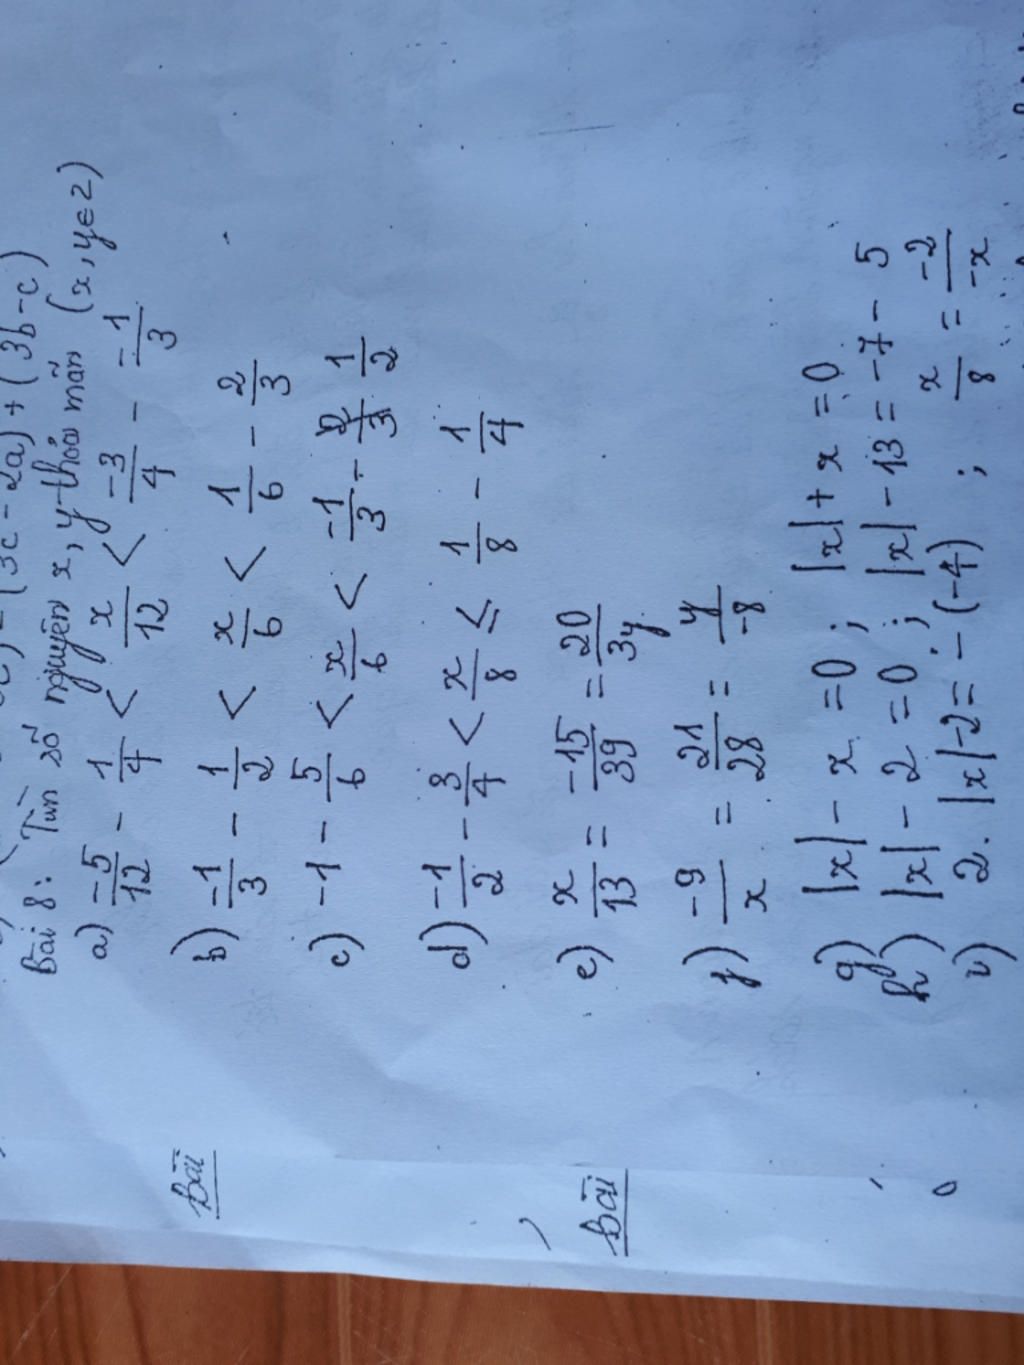 - (3c - 2a) + (3b - c)
Bài 8: Tìm số nguyên x, y thỏa mãn (x, y ∈ Z)
a) \frac{-5}{12} - \frac{1}{4} < \frac{x}{12} < \frac{-3}{4} - \frac{-1}{3}
b) \frac{-1}{3} - \frac{1}{2} < \frac{x}{6} < \frac{1}{6} - \frac{2}{3}
c) -1 - \frac{5}{6} < \frac{x}{6} < \frac{-1}{3} - \frac{1}{2}
d) \frac{-1}{2} - \frac{3}{4} < \frac{x}{8} ≤ \frac{1}{8} - \frac{1}{4}
e) \frac{x}{13} = \frac{-15}{39} = \frac{20}{3y}
f) \frac{-9}{x} = \frac{21}{28} = \frac{y}{-8}
g) |x| - x = 0; |x| + x = 0
h) |x| - 2 = 0; |x| - 13 = -7 - 5
i) 2. |x| - 2 = -(-4); \frac{x}{8} = \frac{-2}{-x}
Bài
Bài